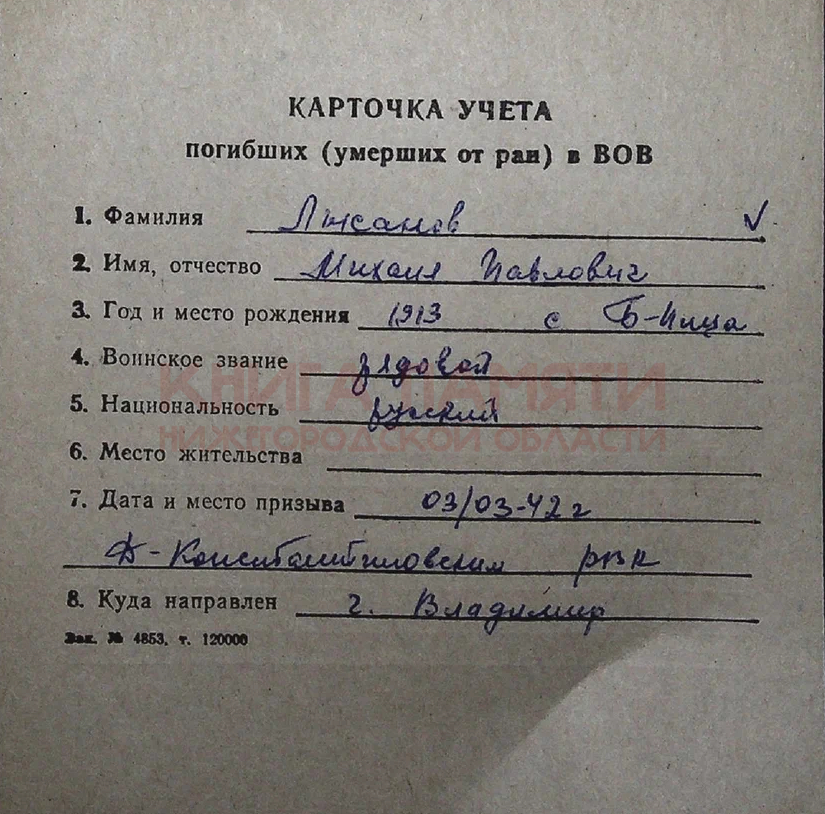 КАРТОЧКА УЧЕТА
погибших (умерших от ран) в ВОВ
1. Фамилия Лысанов ✓
2. Имя, отчество Михаил Павлович
3. Год и место рождения 1913 с Б-Пица
4. Воинское звание рядовой
5. Национальность русский
КНИГА ПАМЯТИ
НИЖЕГОРОДСКОЙ ОБЛАСТИ
6. Место жительства
7. Дата и место призыва 03/03-42 г
Д-Константиновским РВК
8. Куда направлен г. Владимир
Зак. № 4853, т. 120000